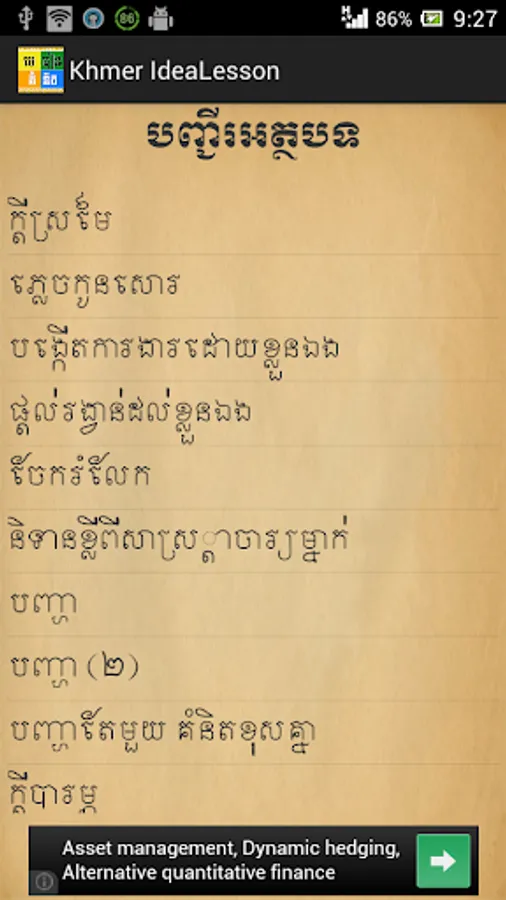 86% 9:27
Khmer IdeaLesson
បញ្ជីរអត្ថបទ
ក្តីស្រម៉ៃ
ភ្លេចកូនសោរ
បង្កើតការងារដោយខ្លួនឯង
ផ្តល់រង្វាន់ដល់ខ្លួនឯង
ចែករំលែក
និទានខ្លីពីសាស្រ្តាចារ្យម្នាក់
បញ្ហា
បញ្ហា (២)
បញ្ហាតែមួយ គំនិតខុសគ្នា
ក្តីបារម្ភ
Asset management, Dynamic hedging,
Alternative quantitative finance